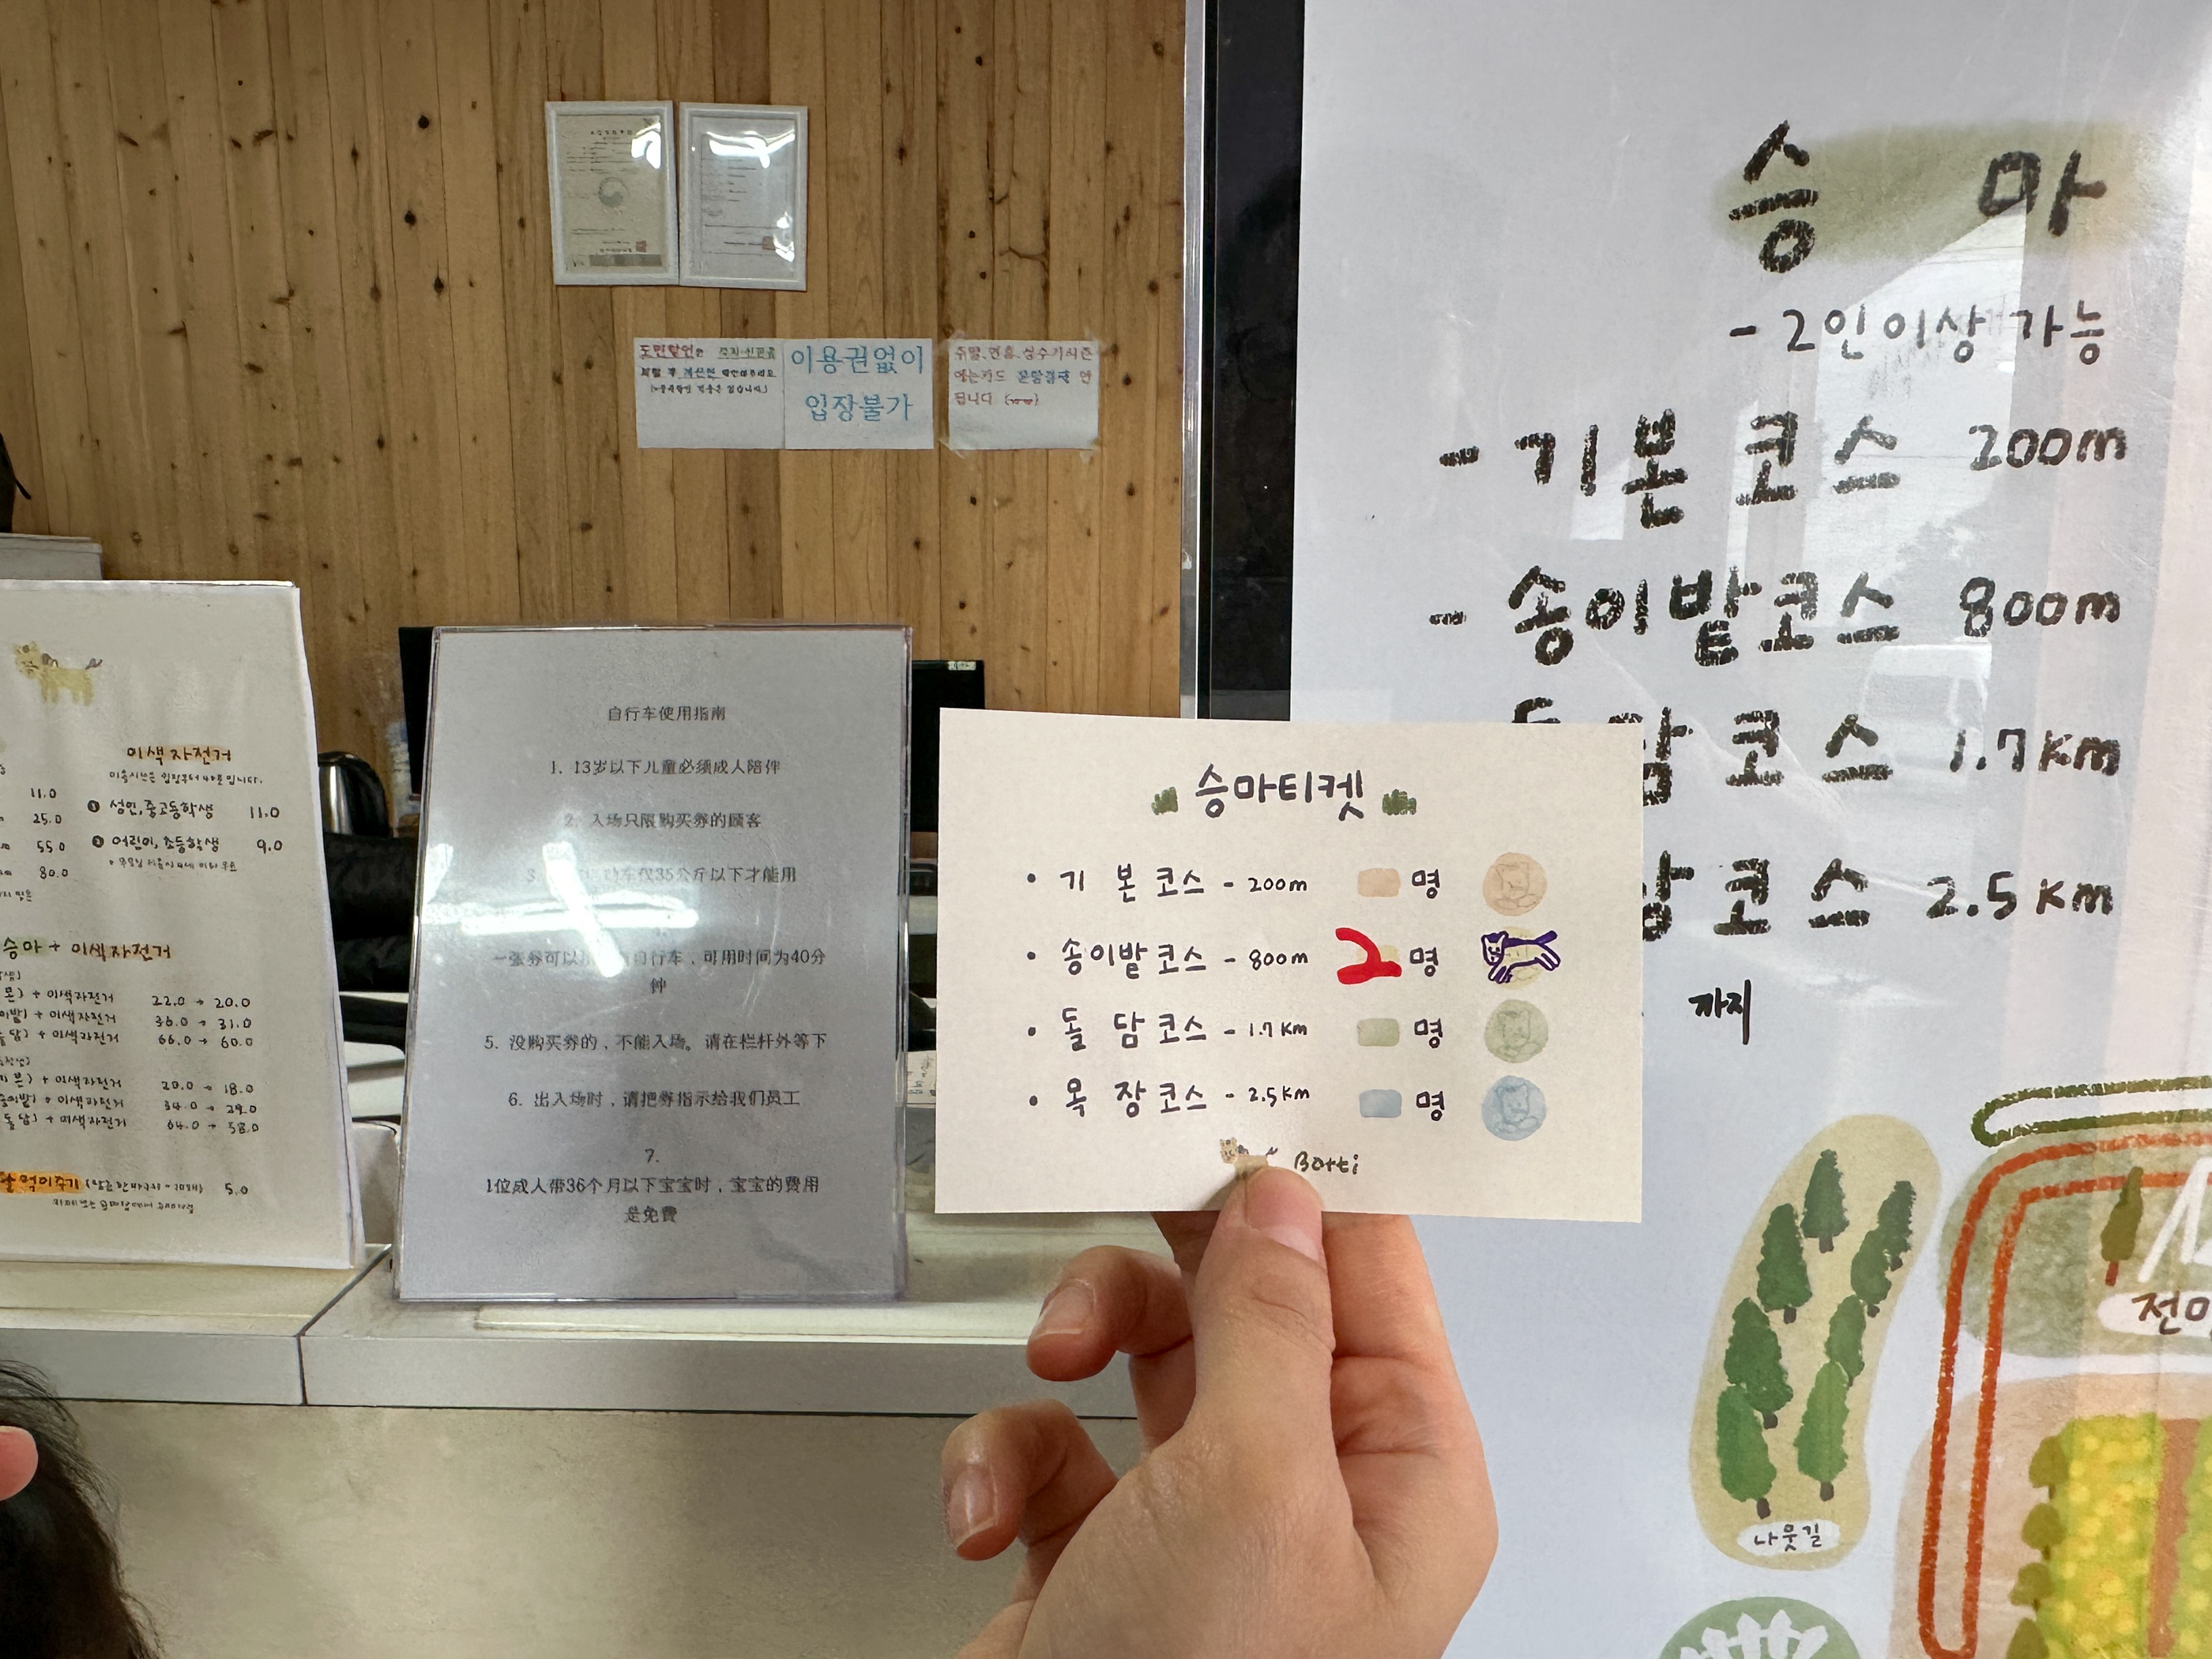 도민할인은
이용권없이
입장불가
주말, 연휴, 성수기시즌
에는카드 분할결제 안
됩니다
이색자전거
이용시간은 입장부터 40분입니다.
11.0
25.0
55.0
80.0
❶ 성인,중고등학생 11.0
❷ 어린이, 초등학생 9.0
승마 + 이색자전거
+ 이색자전거 22.0 → 20.0
+ 이색자전거 36.0 → 31.0
+ 이색자전거 66.0 → 60.0
+ 이색자전거 20.0 → 18.0
+ 이색자전거 34.0 → 29.0
+ 이색자전거 64.0 → 58.0
먹이주기 5.0
自行车使用指南
1. 13岁以下儿童必须成人陪伴
2. 入场只限购买券的顾客
3. 车仅35公斤以下才能用
一张券可以 自行车，可用时间为40分
钟
5. 没购买券的，不能入场。请在栏杆外等下
6. 出入场时，请把券指示给我们员工
7.
1位成人带36个月以下宝宝时，宝宝的费用
是免费
승마티켓
• 기본코스 - 200m 명
• 송이밭코스 - 800m 2 명
• 돌담코스 - 1.7Km 명
• 목장코스 - 2.5Km 명
Borti
승마
- 2인이상 가능
- 기본코스 200m
- 송이밭코스 800m
담코스 1.7Km
장코스 2.5Km
까지
나뭇길